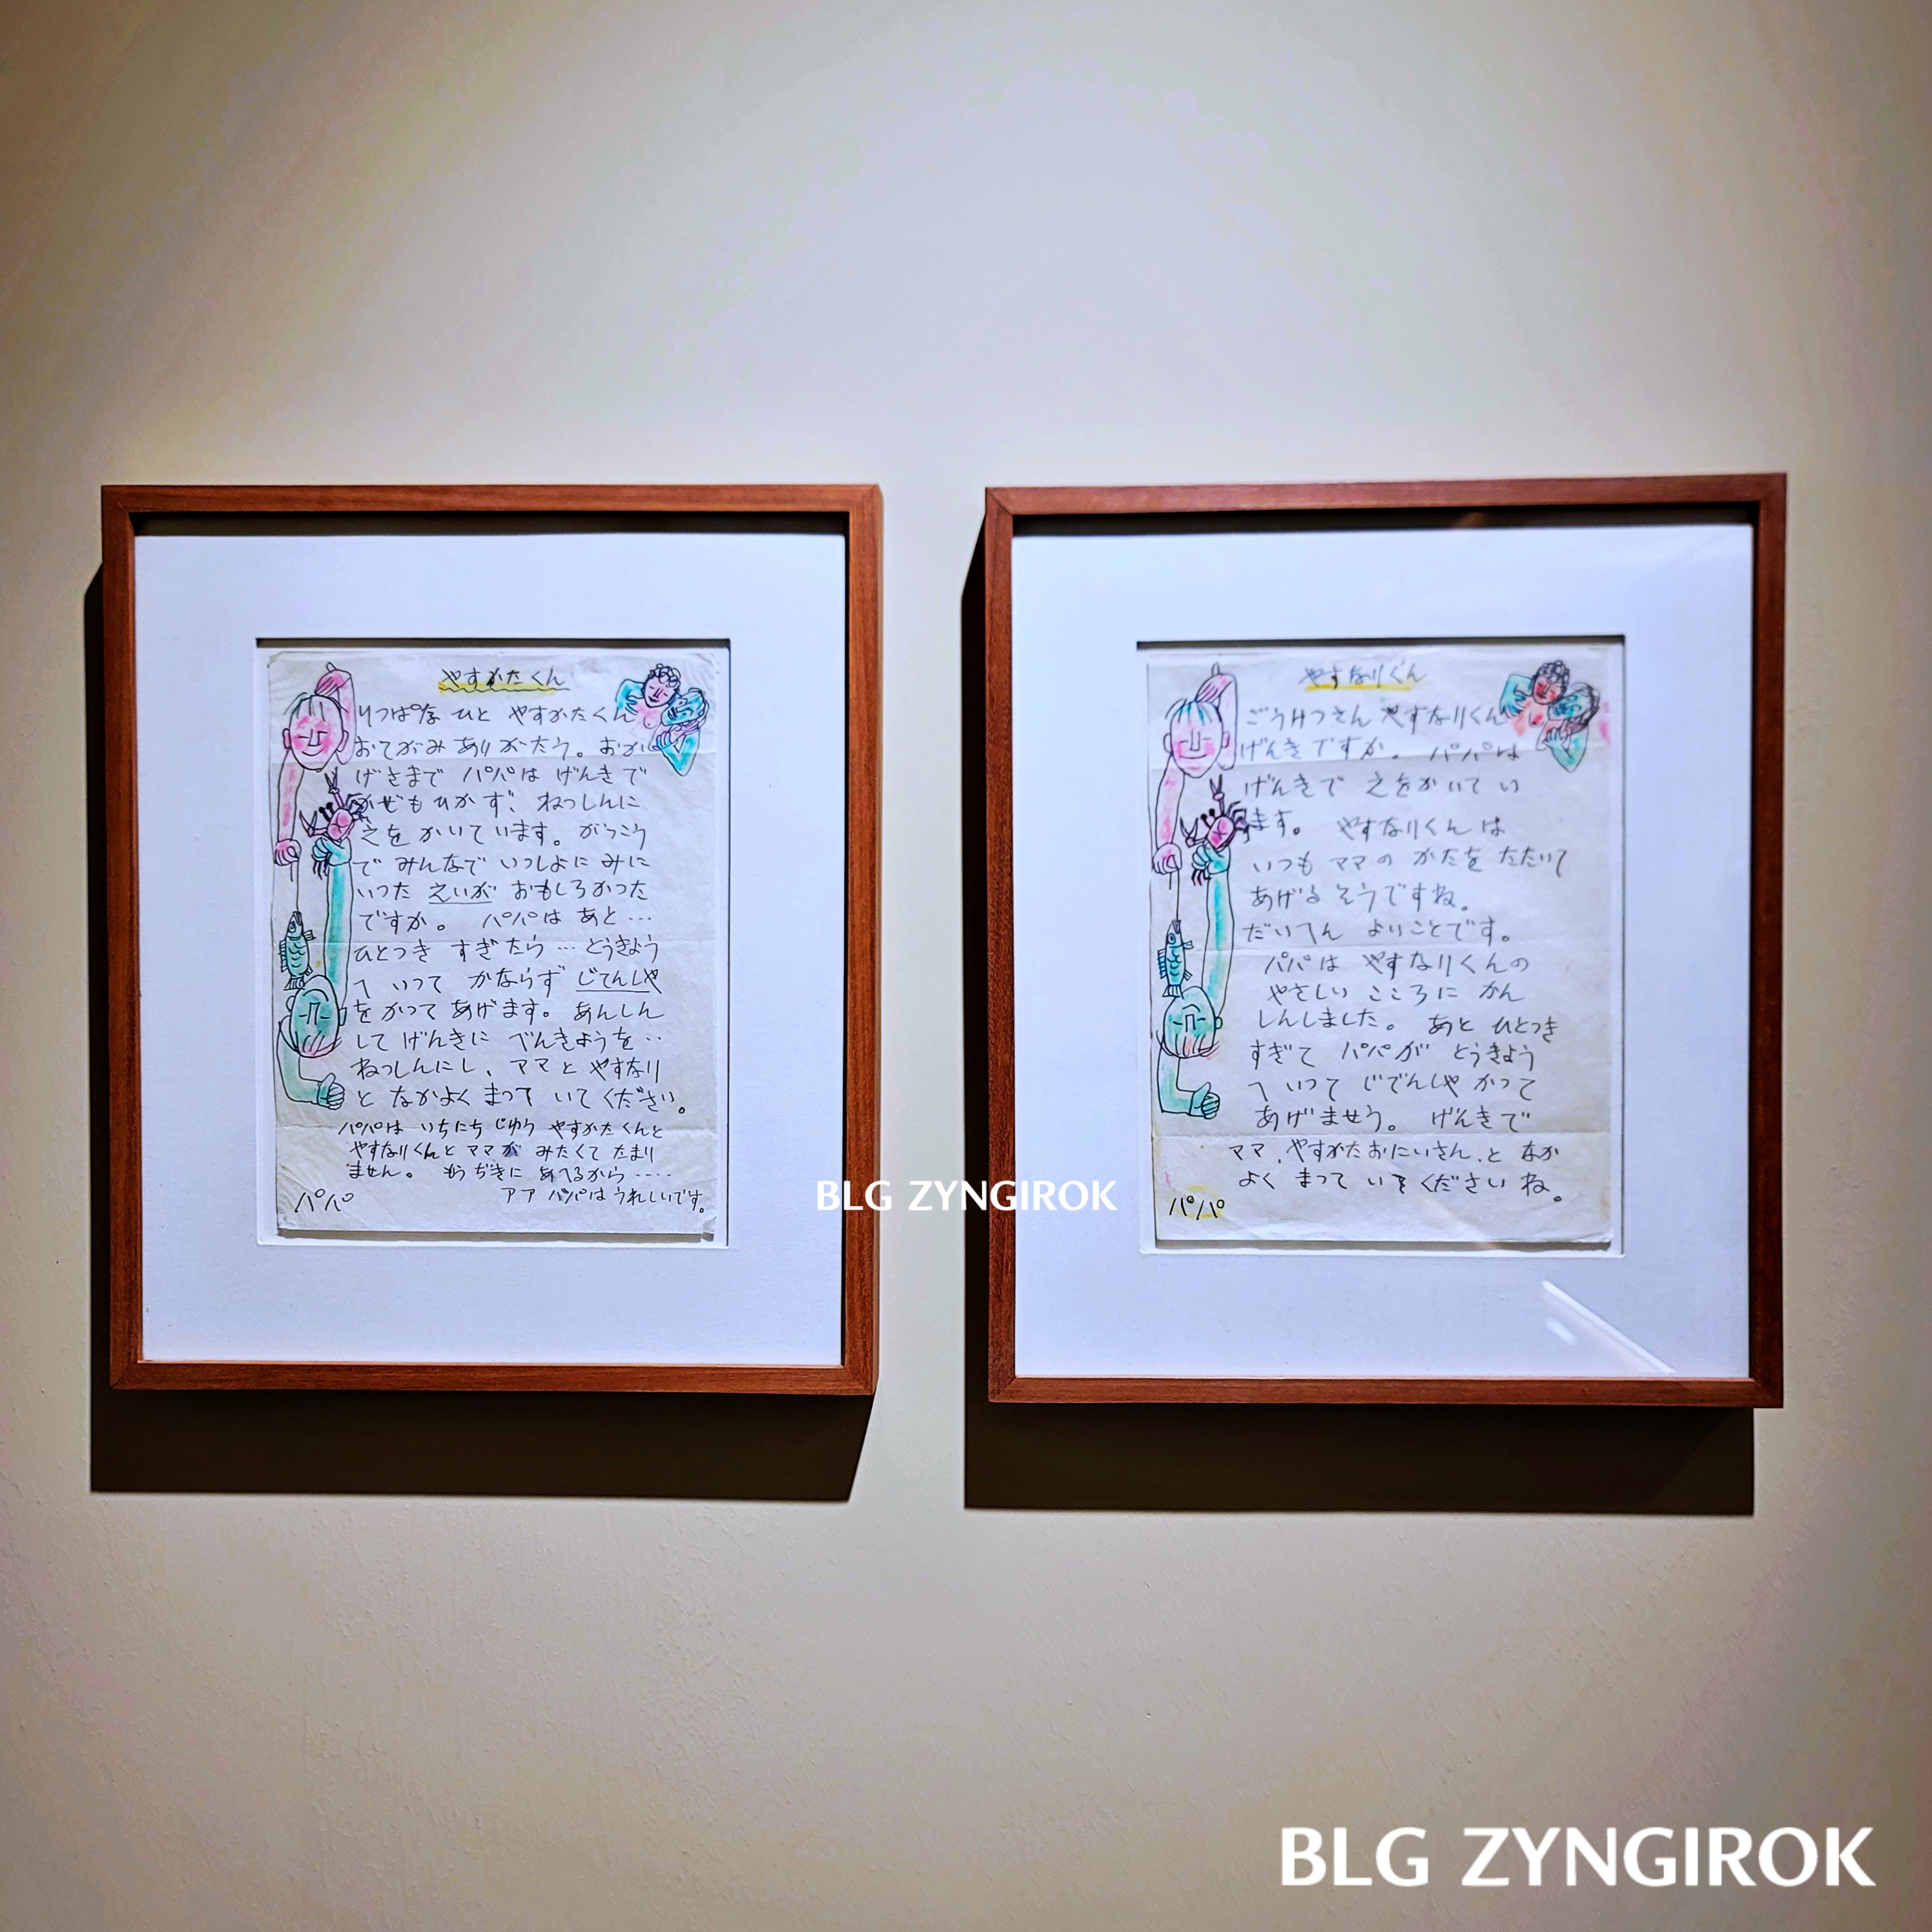 やすかたくん
りっぱな ひと やすかたくん
おてがみ ありがたう。おか
げさまで パパは げんきで
かぜも ひかず、ねっしんに
えを かいています。がっこう
で みんなで いっしよに みに
いつた えいが おもしろかつた
ですか。 パパは あと…
ひとつき すぎたら…とうきよう
へ いって かならず じてんしや
を かって あげます。あんしん
して げんきに べんきようを‥
ねっしんにし、ママと やすなり
と なかよく まって いてください。
パパは いちにち じゆう やすかたくんと
やすなりくんと ママが みたくて たまり
ません。 もうぢきに あへるから……
アア パパは うれしいです。
パパ
やすなりくん
ごうけつさん やすなりくん
げんきですか。 パパは
げんきで えをかいて い
ます。 やすなりくんは
いつも ママの かたを たたいて
あげる そうですね。
だいへん よいことです。
パパは やすなりくんの
やさしい こころに かん
しんしました。 あと ひとつき
すぎて パパが とうきよう
へ いって じでんしや かって
あげませう。 げんきで
ママ、やすかたおにいさん、と なか
よく まって いて ください ね。
パパ
BLG ZYNGIROK
BLG ZYNGIROK